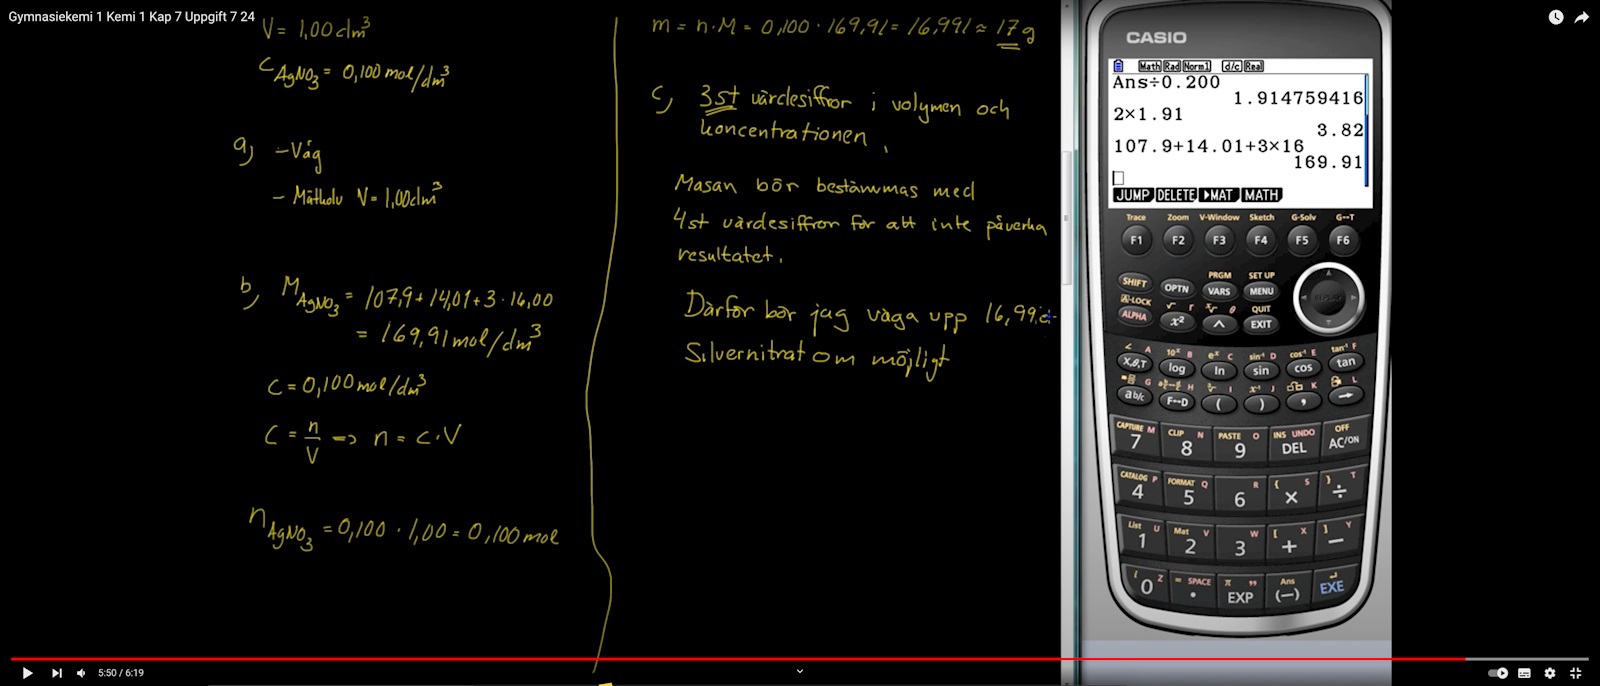 Gymnasiekemi 1 Kemi 1 Kap 7 Uppgift 7 24
V = 1,00 dm³
C AgNO₃ = 0,100 mol/dm³
a) - Våg
- Mätkolv V = 1,00 dm³
b) M AgNO₃ = 107,9 + 14,01 + 3 · 16,00
= 169,91 mol/dm³
C = 0,100 mol/dm³
C = n/V => n = c · V
n AgNO₃ = 0,100 · 1,00 = 0,100 mol
m = n · M = 0,100 · 169,91 = 16,991 ≈ 17 g
c) 3st värdesiffror i volymen och
koncentrationen.
Masan bör bestämmas med
4st värdesiffror för att inte påverka
resultatet.
Därför bör jag väga upp 16,99
Silvernitrat om möjligt
CASIO
Math Rad Norm1 d/c Real
Ans÷0.200
1.914759416
2×1.91
3.82
107.9+14.01+3×16
169.91
JUMP DELETE ►MAT MATH
Trace Zoom V-Window Sketch G-Solv G↔T
F1 F2 F3 F4 F5 F6
PRGM SET UP
SHIFT OPTN VARS MENU
A-LOCK √ r ˣ√ θ QUIT
ALPHA x² ^ EXIT
∠ A 10ˣ B eˣ C sin⁻¹ D cos⁻¹ E tan⁻¹ F
X,θ,T log ln sin cos tan
G H I x⁻¹ J K L
ab/c F↔D ( ) , →
CAPTURE M CLIP N PASTE O INS UNDO OFF
7 8 9 DEL AC/ON
CATALOG P FORMAT Q R { S } T
4 5 6 × ÷
List U Mat V W [ X ] Y
1 2 3 + −
i Z = SPACE π " Ans ↵
0 . EXP (−) EXE
5:50 / 6:19